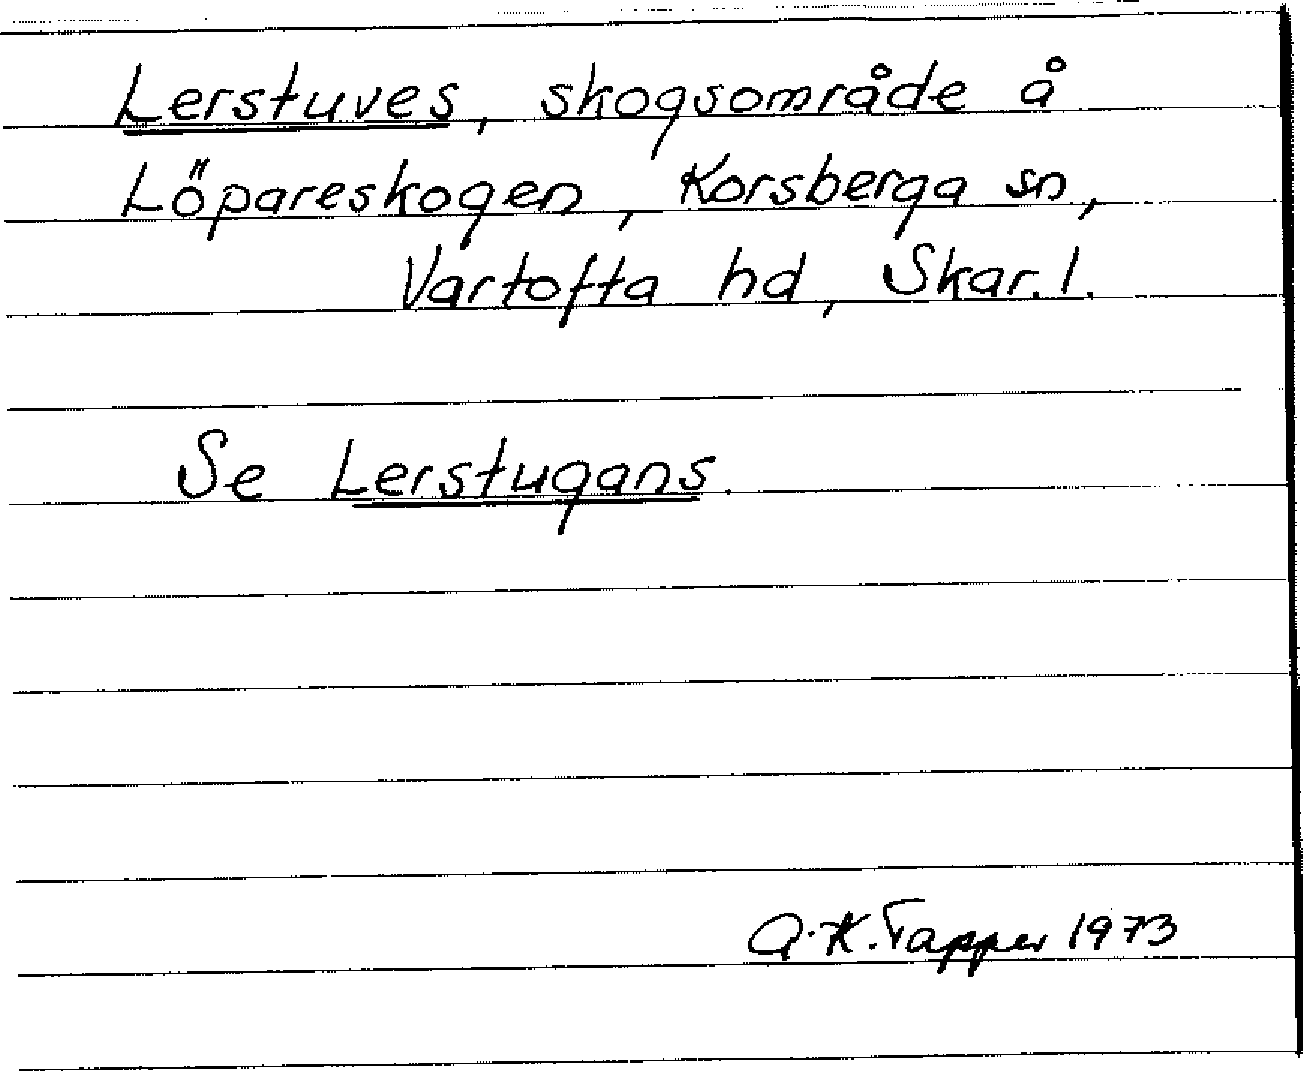 Lerstuves, skogsområde å
Löpareskogen, Korsberga sn,
Vartofta hd, Skar. l.
Se Lerstugans.
A-K. Tapper 1973